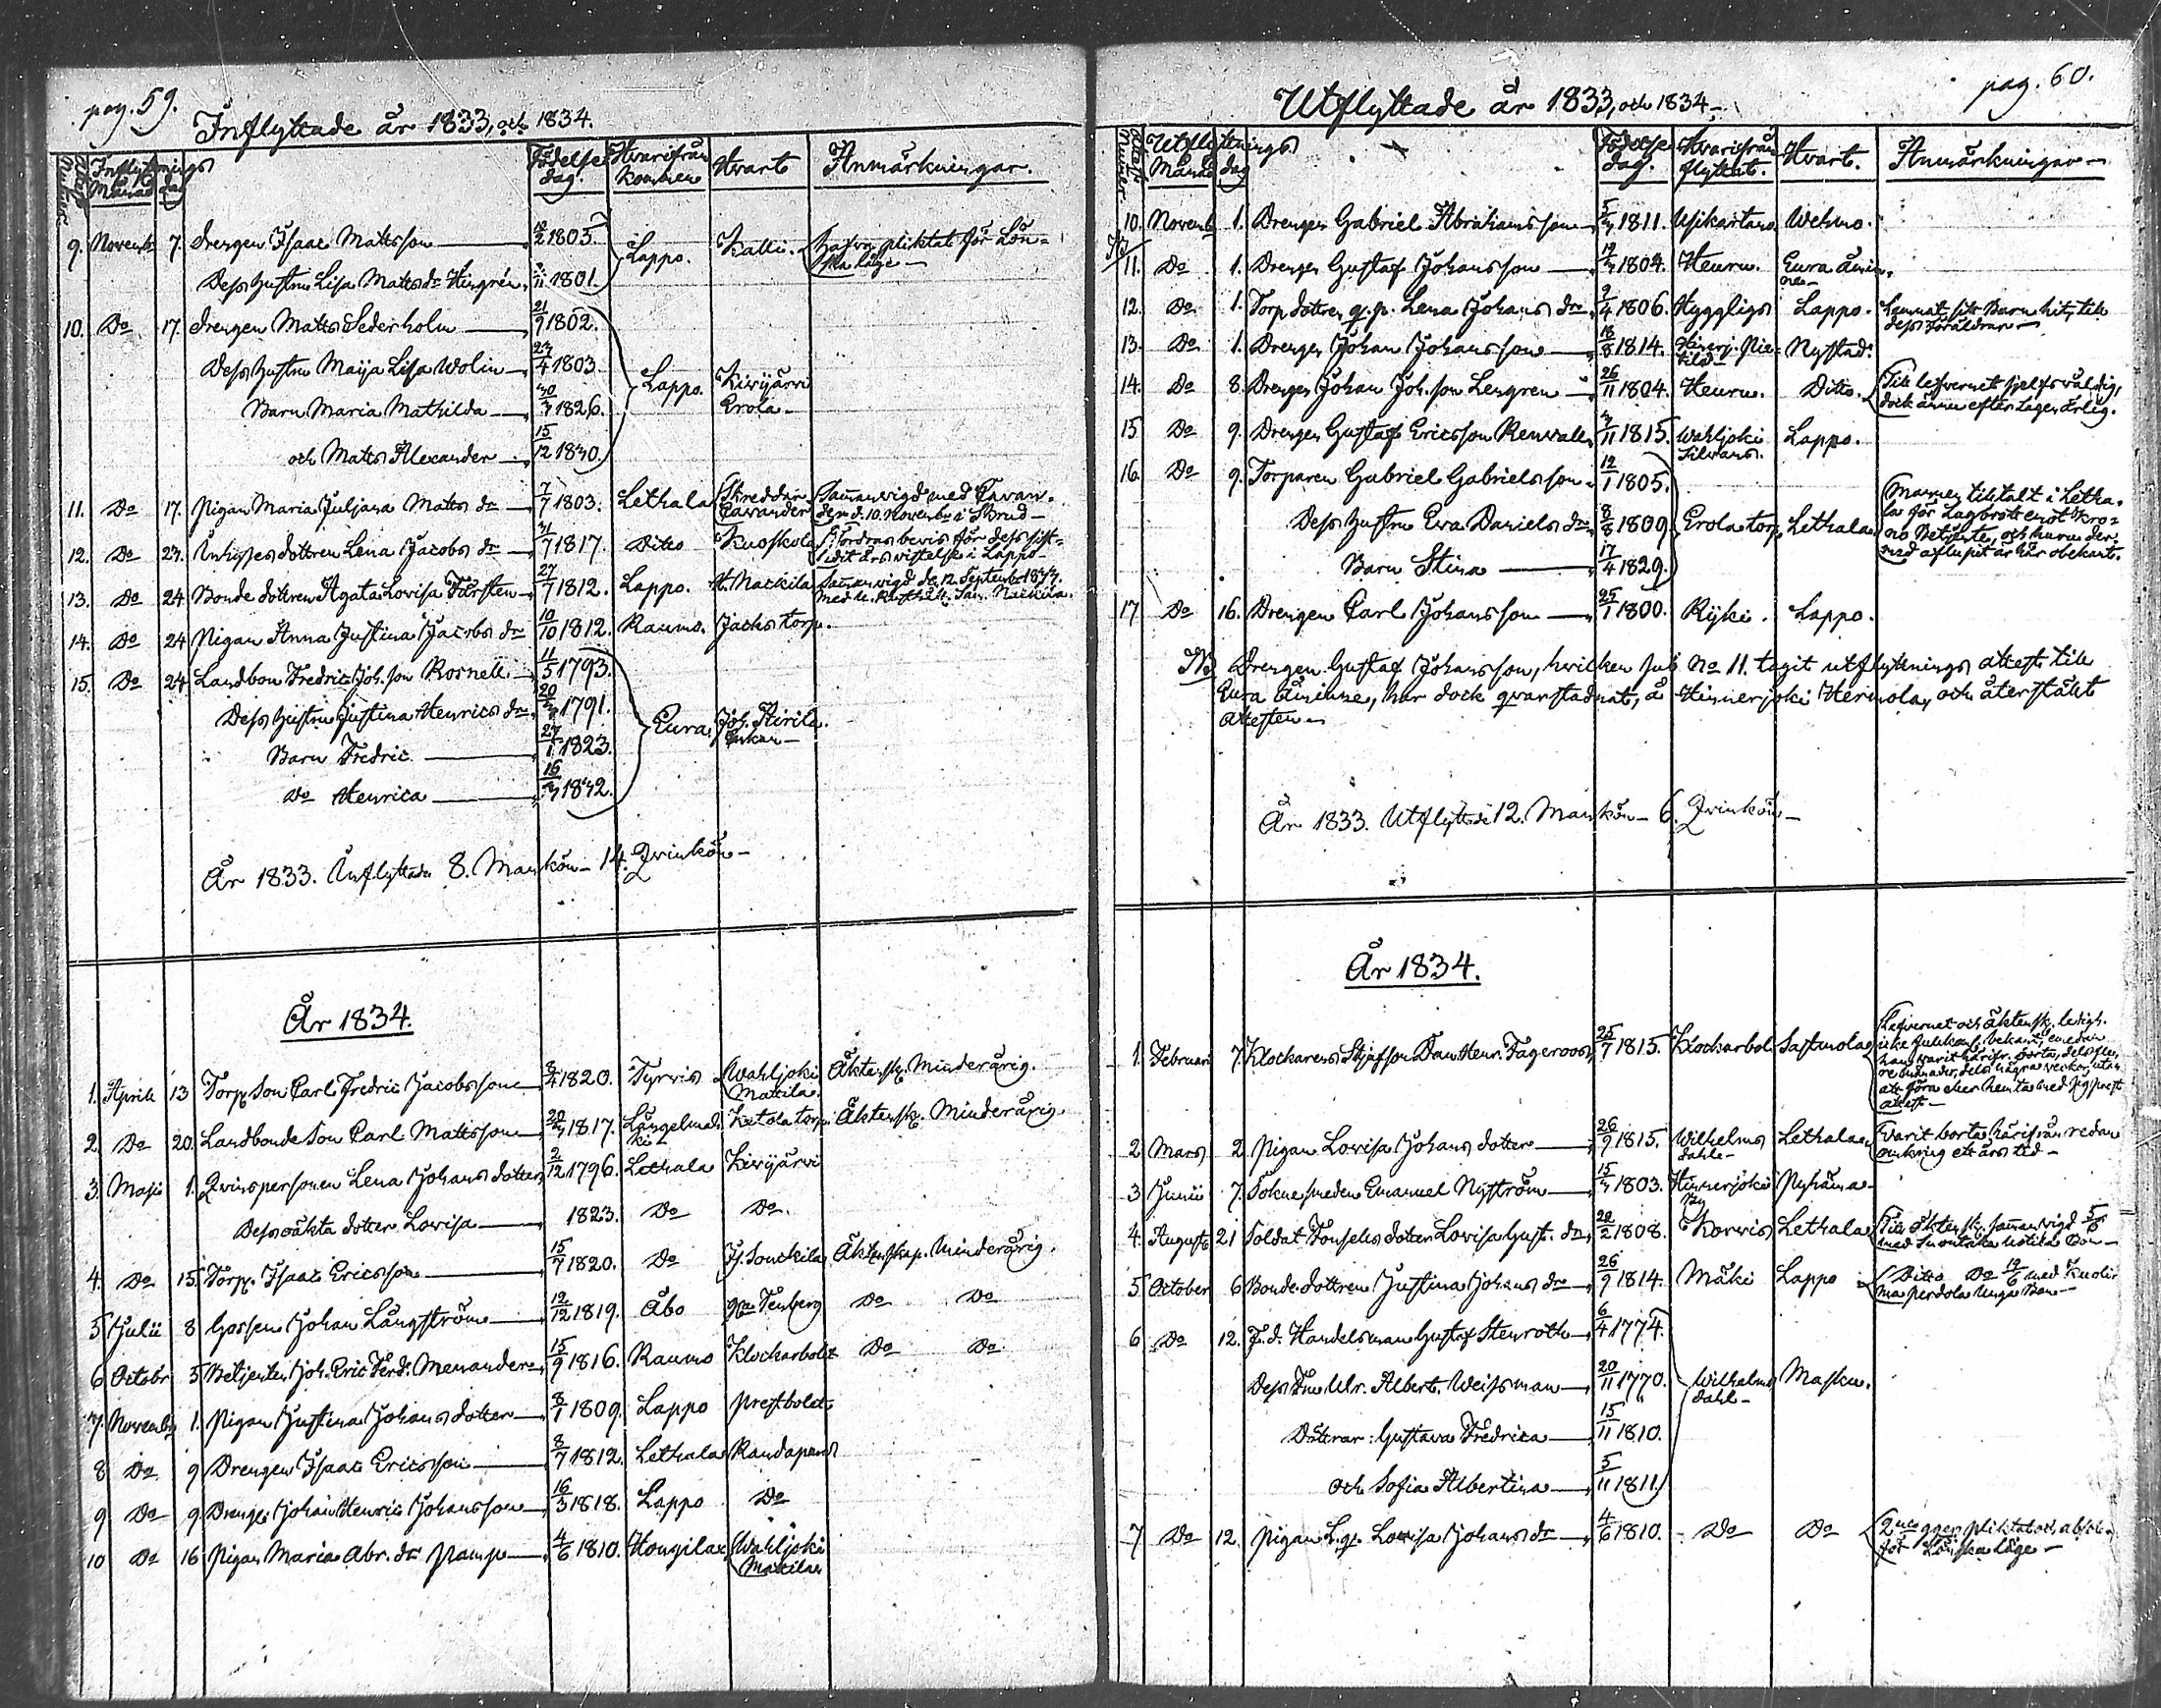 pag. 59.
Inflyttade år 1833, och 1834.
Inflyttnings
Månad dag
Födelse dag.
Hvarifrån kommen
Hvart
Anmärkningar.
9. Novemb. 7. Drengen Isaac Mattsson 1805. Lappo. Kalli. Hafva pliktat för Lön-
ska läge
Dess Hustru Lisa Matts dr Hirgrén 1801.
10. Do 17. Drengen Matts Sederholm 21/9 1802.
Dess Hustru Maija Lisa Wolin 23/4 1803. Lappo. Kivijärvi
Barn Maria Mathilda 30/3 1826. Erola
och Matts Alexander 15/12 1830.
11. Do 17. Pigan Maria Juljana Matts dr 7/7 1803. Lethala Skreddar Sammanvigd med Cavan-
Cavander der d. 10. Novembr i Brud
12. Do 23. Inhyses dottren Lena Jacobs dr 31/7 1817. Ditto Kuoskola Fordras bevis för dess sist-
ledit års vistelse i Lappo
13. Do 24 Bonde dottren Agata Lovisa Fårsten 27/7 1812. Lappo. N. Nackila Sammanvigd de 12 Septembr 1833.
14. Do 24 Pigan Anna Justina Jacobs dr 10/10 1812. Raumo. Jachs torp.
15. Do 24 Landbon Fredric Joh. son Rosnell 11/5 1793.
Dess Hustru Justina Henrics dr 1791. Eura. Joh. Kirila
Barn Fredric 1823. Enkan
Do Henrica 1832.
År 1833. Inflyttade 8. Mankön 14. Qvinkön
År 1834.
1. Aprill 13 Torp. Son Carl Fredric Jacobsson 3/4 1820. Tyrvis Wahljoki Äktensk. Minderårig.
Mattila
2 Do 20. Landbonde Son Carl Mattsson 1817. Längelmä- Ketola torp Äktensk. Minderårig
ki
3. Maji 1. Qvinspersonen Lena Johans dotter 2/12 1796. Lethala Kivijärvi
Dess oäkta dotter Lovisa 1823. Do Do.
4. Do 15 Torp. Isaac Ericsson 15/7 1820. Do J. Sonckila Äktenskap. Minderårig.
5 Julii 8 Gossen Johan Långström 12/12 1819. Åbo Tenberg Do Do
6 Octobr 5 Betjenten Joh. Eric Ferd. Menander 15/9 1816. Raumo Klockarbole Do Do
7. Novemb. 1. Pigan Justina Johans dotter 8/1 1809. Lappo Prestbole
8 Do 9 Drengen Isaac Ericsson 8/7 1812. Lethala Randapend
9 Do 9 Dreng. Johan Henric Johansson 16/3 1818. Lappo Do
10 Do 16 Pigan Maria Abr. dr Pampo 4/6 1810. Hongilax Wahljoki
Mattila
pag. 60.
Utflyttade år 1833, och 1834
Utflyttnings
Månad dag
Födelse dag.
Hvarifrån flyttat.
Hvart.
Anmärkningar
10. Novemb 1. Drengen Gabriel Abrahamsson 1811. Uikartano Wehmo.
NB
11. Do 1. Drengen Gustaf Johansson 1804. Heuru. Eura åmin-
ne
12. Do 1. Torp dottren q. p. Lena Johans dr 2/4 1806. Hyggligs Lappo. Lemnat sitt Barn hit, till
dess Föräldrar
13. Do 1. Drengen Johan Johansson 18/8 1814. Hinerj. Pie- Nystad.
tilä
14. Do 8. Drengen Johan Joh. son Lengren 26/11 1804. Heuru. Ditto. Till lefvernet sjelfsvåldig,
dock ännu efter Lagen ärlig.
15 Do 9. Drengen Gustaf Ericsson Renvall 3/11 1815. Wahljoki Lappo.
Silvans.
16. Do 9. Torparen Gabriel Gabrielsson 12/1 1805.
Dess Hustru Eva Daniels dr 1809 Erola torp Lethala Mannen tiltalt i Letha-
la för Lagbrott emot Kro-
no Betjente, och huru der-
med aflupit är här obekant.
Barn Stina 17/4 1829.
17 Do 16. Drengen Carl Johansson 25/1 1800. Kyki. Lappo.
NB Drengen Gustaf Johansson, hvilken sub No 11. tagit utflyttnings attest till
Eura Åminne, har dock qvarstadnat, å Hinnerjoki Hermola, och återstält
attesten
År 1833. Utflyttade 12. Mankön 6. Qvinkön
År 1834.
1. Februari 7. Klockarens Styfson Dav. Henr. Fageroos 25/7 1815. Klockarbol Sastmola Lefvernet och äktensk. ledigh.
icke fullkoml. bekant, emedan
han varit härifr. borta, dels fle-
re månader, dels några veckor, utan
att göra eller hemta med sig prest
attest
2 Mars 2 Pigan Lovisa Johans dotter 26/9 1815. Wilhelms Lethala Varit borta härifrån redan
dahl omkring ett års tid
3 Junii 7. Sokne smeden Emanuel Nyström 1803. Hinnerjoki Pyhäma
By
4. Augusti 21 Soldat Fonsells dotter Lovisa Gust. dr 1808. Korvis Lethala Till äktensk. samanvigd
5 October 6 Bonde dottren Justina Johans dr 26/9 1814. Mäki Lappo Ditto Do med
6 Do 12. F. d. Handelsman Gustaf Stenroth 6/4 1774.
Dess Fru Ulr. Albert. Weissman 20/11 1770. Wilhelms Masku.
dahl
Döttrar: Gustava Fredrica 15/11 1810.
och Sofia Albertina 5/11 1811.
7 Do 12. Pigan L. q. Lovisa Johans dr 4/6 1810. Do Do 2ne ggr pliktat och absolv.
för Lönska läge